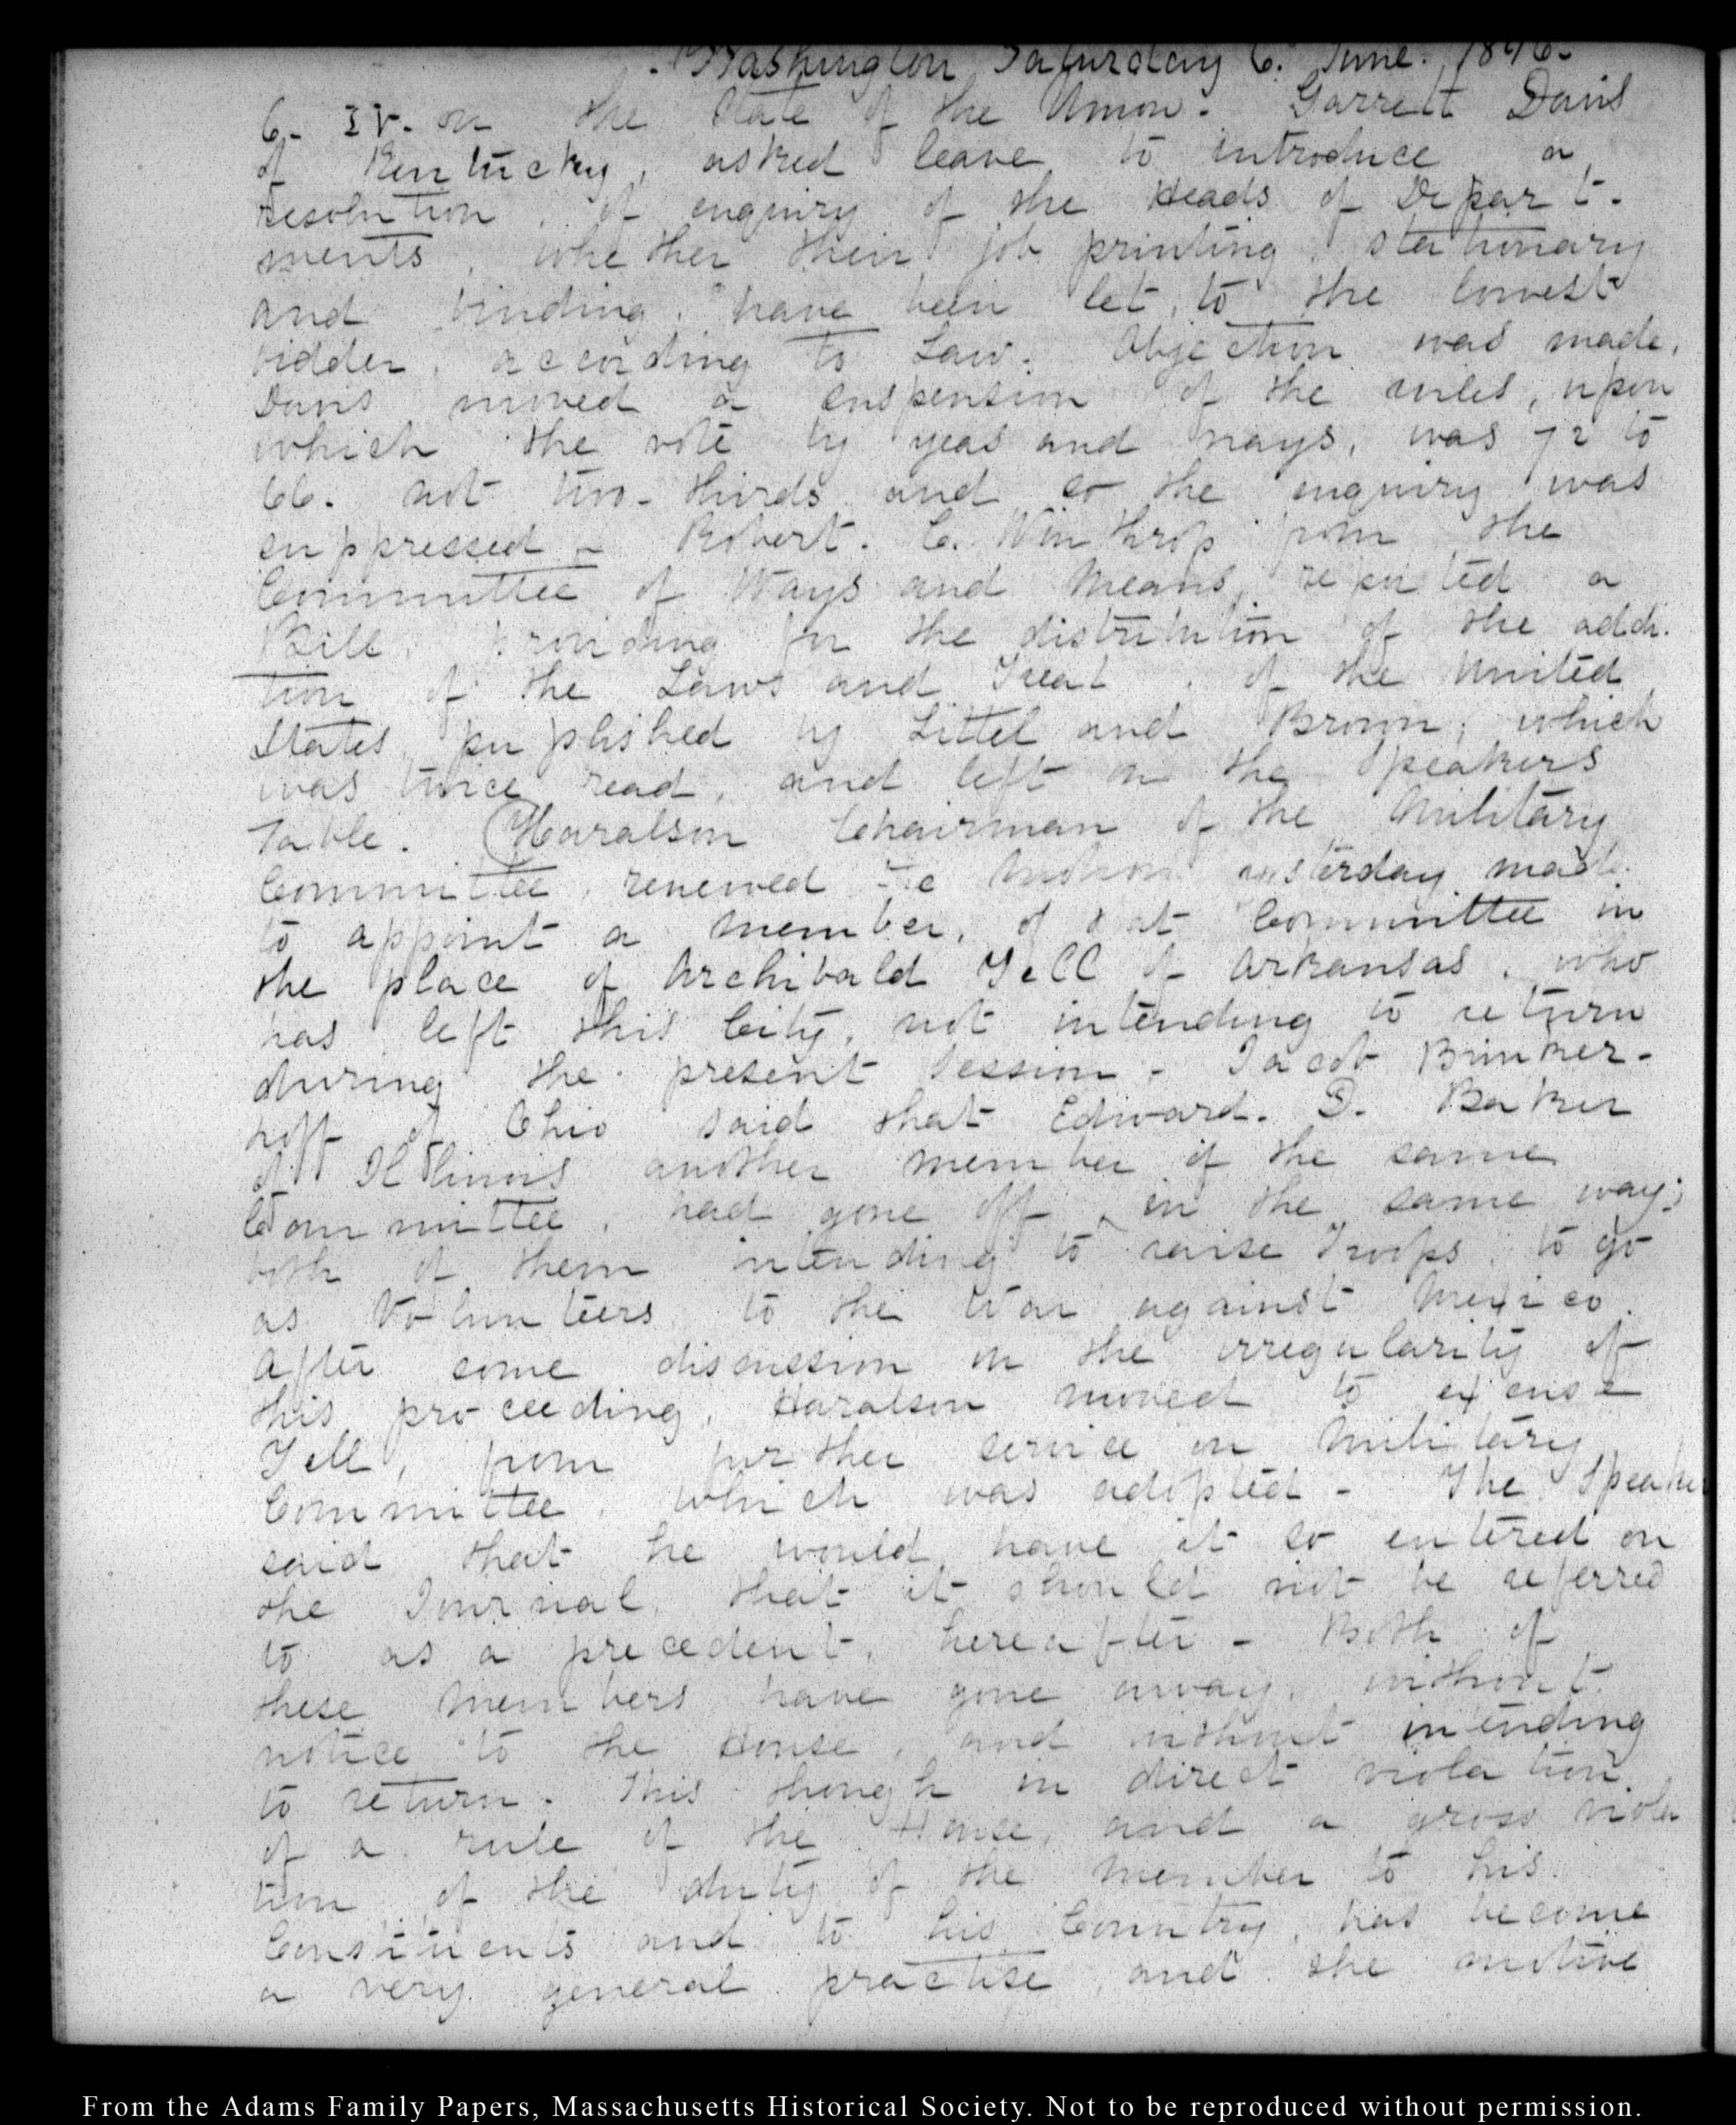 Washington Saturday 6. June. 1846-
6. IV. on the State of the Union. Garrett Davis
of Kentucky, asked leave to introduce a
resolution, of enquiry of the Heads of Depart-
ments, whether their job printing, stationary
and binding, have been let, to the lowest
bidder, according to Law. Objection was made.
Davis moved a suspension of the rules, upon
which the vote by yeas and nays, was 72 to
66. not two-thirds and so the enquiry was
suppressed – Robert. C. Winthrop from the
Committee of Ways and Means, reported a
Bill, providing for the distribution of the addi-
tion of the Laws and Treat of the United
States, puplished by Littel and Brown; which
was twice read, and left on the Speakers
Table. Haralson Chairman of the Military
Committee, renewed the motion yesterday made
to appoint a member, of that Committee in
the place of Archibald Yell of Arkansas, who
has left this City, not intending to return
during the present Session – Jacob Brinker-
hoff of Ohio said that Edward. D. Baker
of Illinois another member of the same
Committee, had gone off, in the same way;
both of them intending to raise Troops, to go
as Volunteers to the War against Mexico.
After some discussion on the irregularity of
this proceeding, Haralson moved to excuse
Yell, from further service on Military
Committee, which was adopted – The Speaker
said that he would have it so entered on
the Journal, that it should not be referred
to as a precedent, hereafter – Both of
these members have gone away, without
notice to the House, and without intending
to return. This though in direct violation
of a rule of the House, and a gross viola
tion of the duty of the member to his
Constituents and to his Country, has become
a very general practise, and the motive
From the Adams Family Papers, Massachusetts Historical Society. Not to be reproduced without permission.